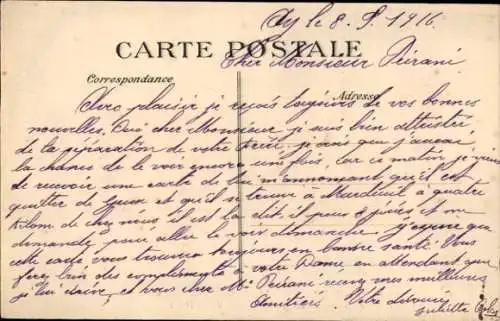 Ay le 8. 9. 1916
CARTE POSTALE
Cher Monsieur Peirani
Correspondance
Adresse
Avec plaisir je reçois toujours de vos bonnes
nouvelles. Oui cher Monsieur je suis bien attristée
de la séparation de votre je sais que j'aurai
la chance de le voir encore une fois, car ce matin je viens
de recevoir une carte de lui m'annonçant qu'il est
quitter de et qu'il se trouve à Mardeuil à quatre
kilom de chez nous il est là dit il pour 8 jours et me
demande pour aller le voir dimanche. j'espère que
cette carte vous trouvera toujours en bonne santé. Vous
ferez bien des compliments à votre Dame en attendant que
je lui écrive, et vous cher Mr Peirani recevez mes meilleures
Amitiés. Votre
Juliette